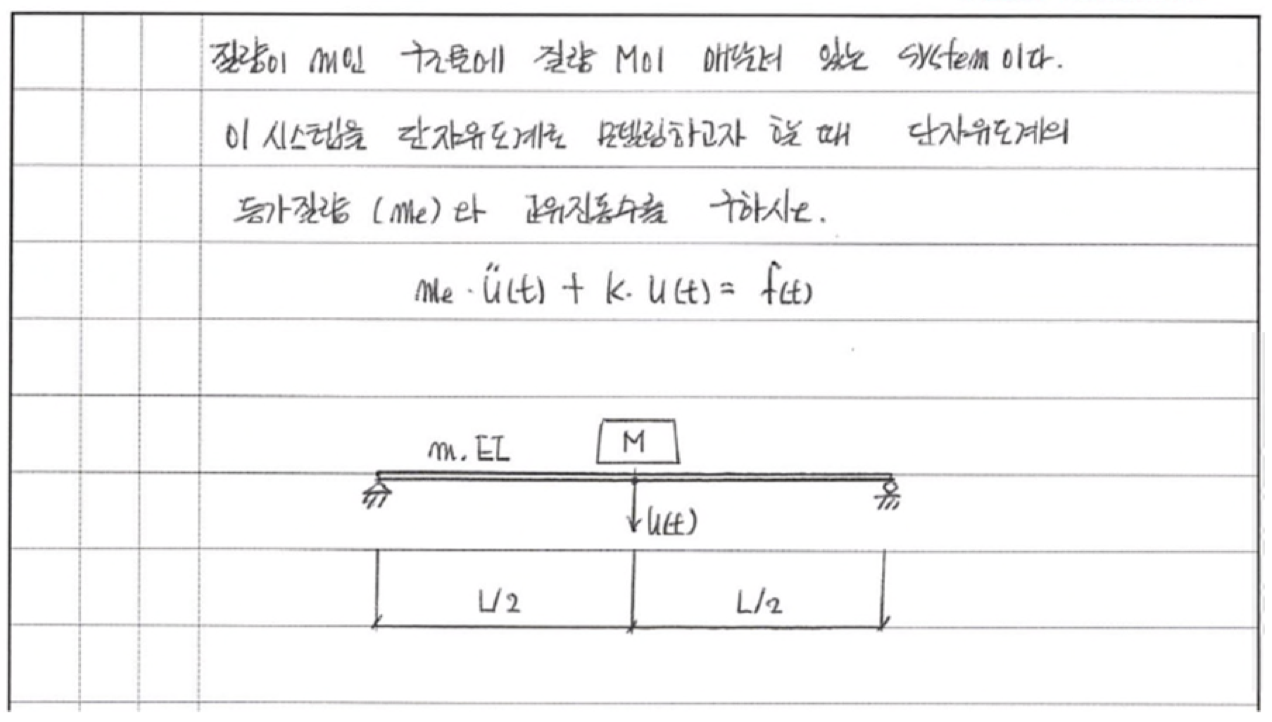 질량이 m인 구조물에 질량 M이 매달려 있는 system이다.
이 시스템을 단자유도계로 모델링하고자 할 때 단자유도계의
등가질량 (me)와 고유진동수를 구하시오.
me · ü(t) + k · u(t) = f(t)
m. EI
M
u(t)
L/2 L/2